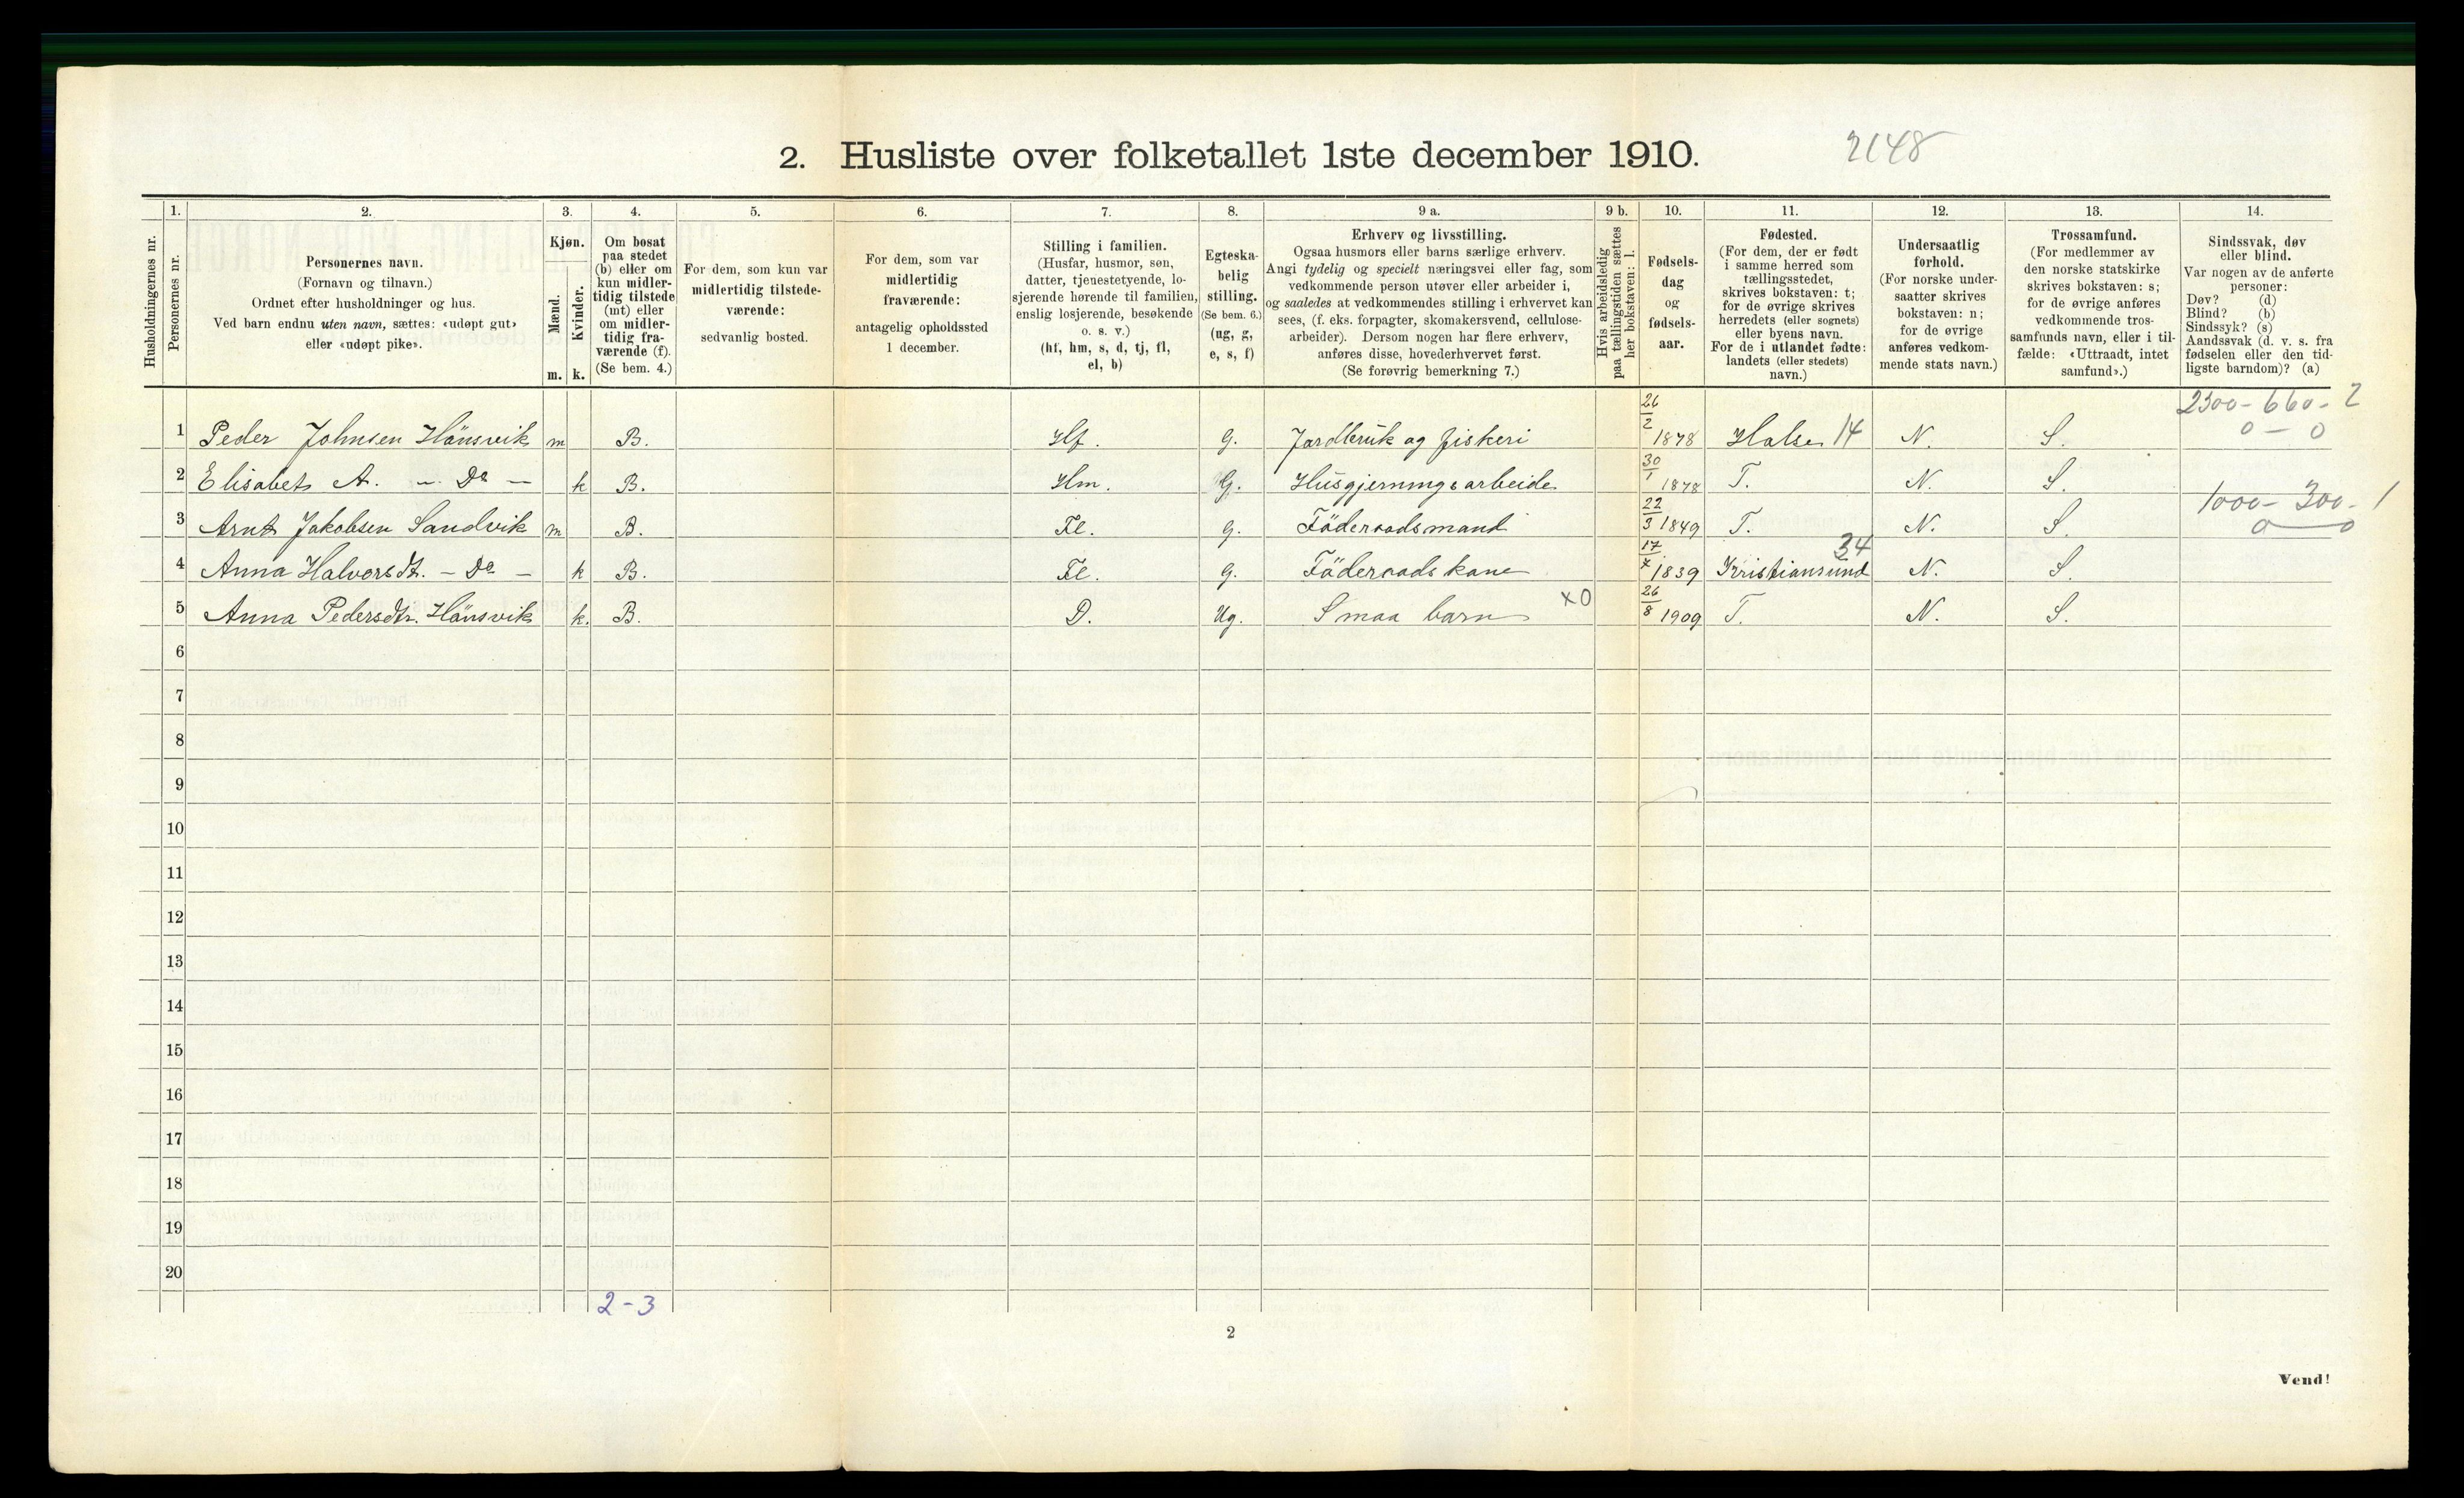 2. Husliste over folketallet 1ste december 1910. 2148
1. 2. 3. 4. 5. 6. 7. 8. 9 a. 9 b. 10. 11. 12. 13. 14.
Husholdningernes nr.
Personernes nr.
Personernes navn.
(Fornavn og tilnavn.)
Ordnet efter husholdninger og hus.
Ved barn endnu uten navn, sættes: «udøpt gut»
eller «udøpt pike».
Kjøn.
Mænd.
Kvinder.
m. k.
Om bosat
paa stedet
(b) eller om
kun midler-
tidig tilstede
(mt) eller
om midler-
tidig fra-
værende (f).
(Se bem. 4.)
For dem, som kun var
midlertidig tilstede-
værende:
sedvanlig bosted.
For dem, som var
midlertidig
fraværende:
antagelig opholdssted
1 december.
Stilling i familien.
(Husfar, husmor, søn,
datter, tjenestetyende, lo-
sjerende hørende til familien,
enslig losjerende, besøkende
o. s. v.)
(hf, hm, s, d, tj, fl,
el, b)
Egteska-
belig
stilling.
(Se bem. 6.)
(ug, g,
e, s, f)
Erhverv og livsstilling.
Ogsaa husmors eller barns særlige erhverv.
Angi tydelig og specielt næringsvei eller fag, som
vedkommende person utøver eller arbeider i,
og saaledes at vedkommendes stilling i erhvervet kan
sees, (f. eks. forpagter, skomakersvend, cellulose-
arbeider). Dersom nogen har flere erhverv,
anføres disse, hovederhvervet først.
(Se forøvrig bemerkning 7.)
Hvis arbeidsledig
paa tællingstiden sættes
her bokstaven: l.
Fødsels-
dag
og
fødsels-
aar.
Fødested.
(For dem, der er født
i samme herred som
tællingsstedet,
skrives bokstaven: t;
for de øvrige skrives
herredets (eller sognets)
eller byens navn.
For de i utlandet fødte:
landets (eller stedets)
navn.)
Undersaatlig
forhold.
(For norske under-
saatter skrives
bokstaven: n;
for de øvrige
anføres vedkom-
mende stats navn.)
Trossamfund.
(For medlemmer av
den norske statskirke
skrives bokstaven: s;
for de øvrige anføres
vedkommende tros-
samfunds navn, eller i til-
fælde: «Uttraadt, intet
samfund».)
Sindssvak, døv
eller blind.
Var nogen av de anførte
personer:
Døv? (d)
Blind? (b)
Sindssyk? (s)
Aandssvak (d. v. s. fra
fødselen eller den tid-
ligste barndom)? (a)
2300-660-2
0-0
1 Peder Johnsen Hänsvik m B. Hf. G. Jordbruk og fiskeri 26/2 1878 Halse 14 N. S.
2 Elisabets A. - Do - k B. Hm. G. Husgjerningsarbeide 30/1 1878 T. N. S.
1000-300-1
0-0
3 Arnt Jakobsen Sandvik m B. Fl. G. Föderaadsmand 22/3 1849 T. N. S.
4 Anna Halvorsdt. - Do - k B. Fl. G. Föderaadskone 17/7 1839 Kristiansund 34 N. S.
5 Anna Pedersdtr. Hänsvik k. B. D. Ug. Smaa barn x0 26/8 1909 T. N. S.
6
7
8
9
10
11
12
13
14
15
16
17
18
19
20
2-3
2
Vend!